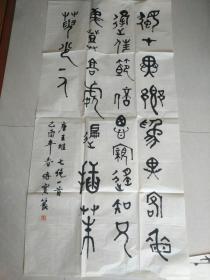 獨在異鄉爲異客每
逢佳節倍思親遙知兄
弟登高處徧插茱
萸少一人
唐王維七絕一首
酉年春